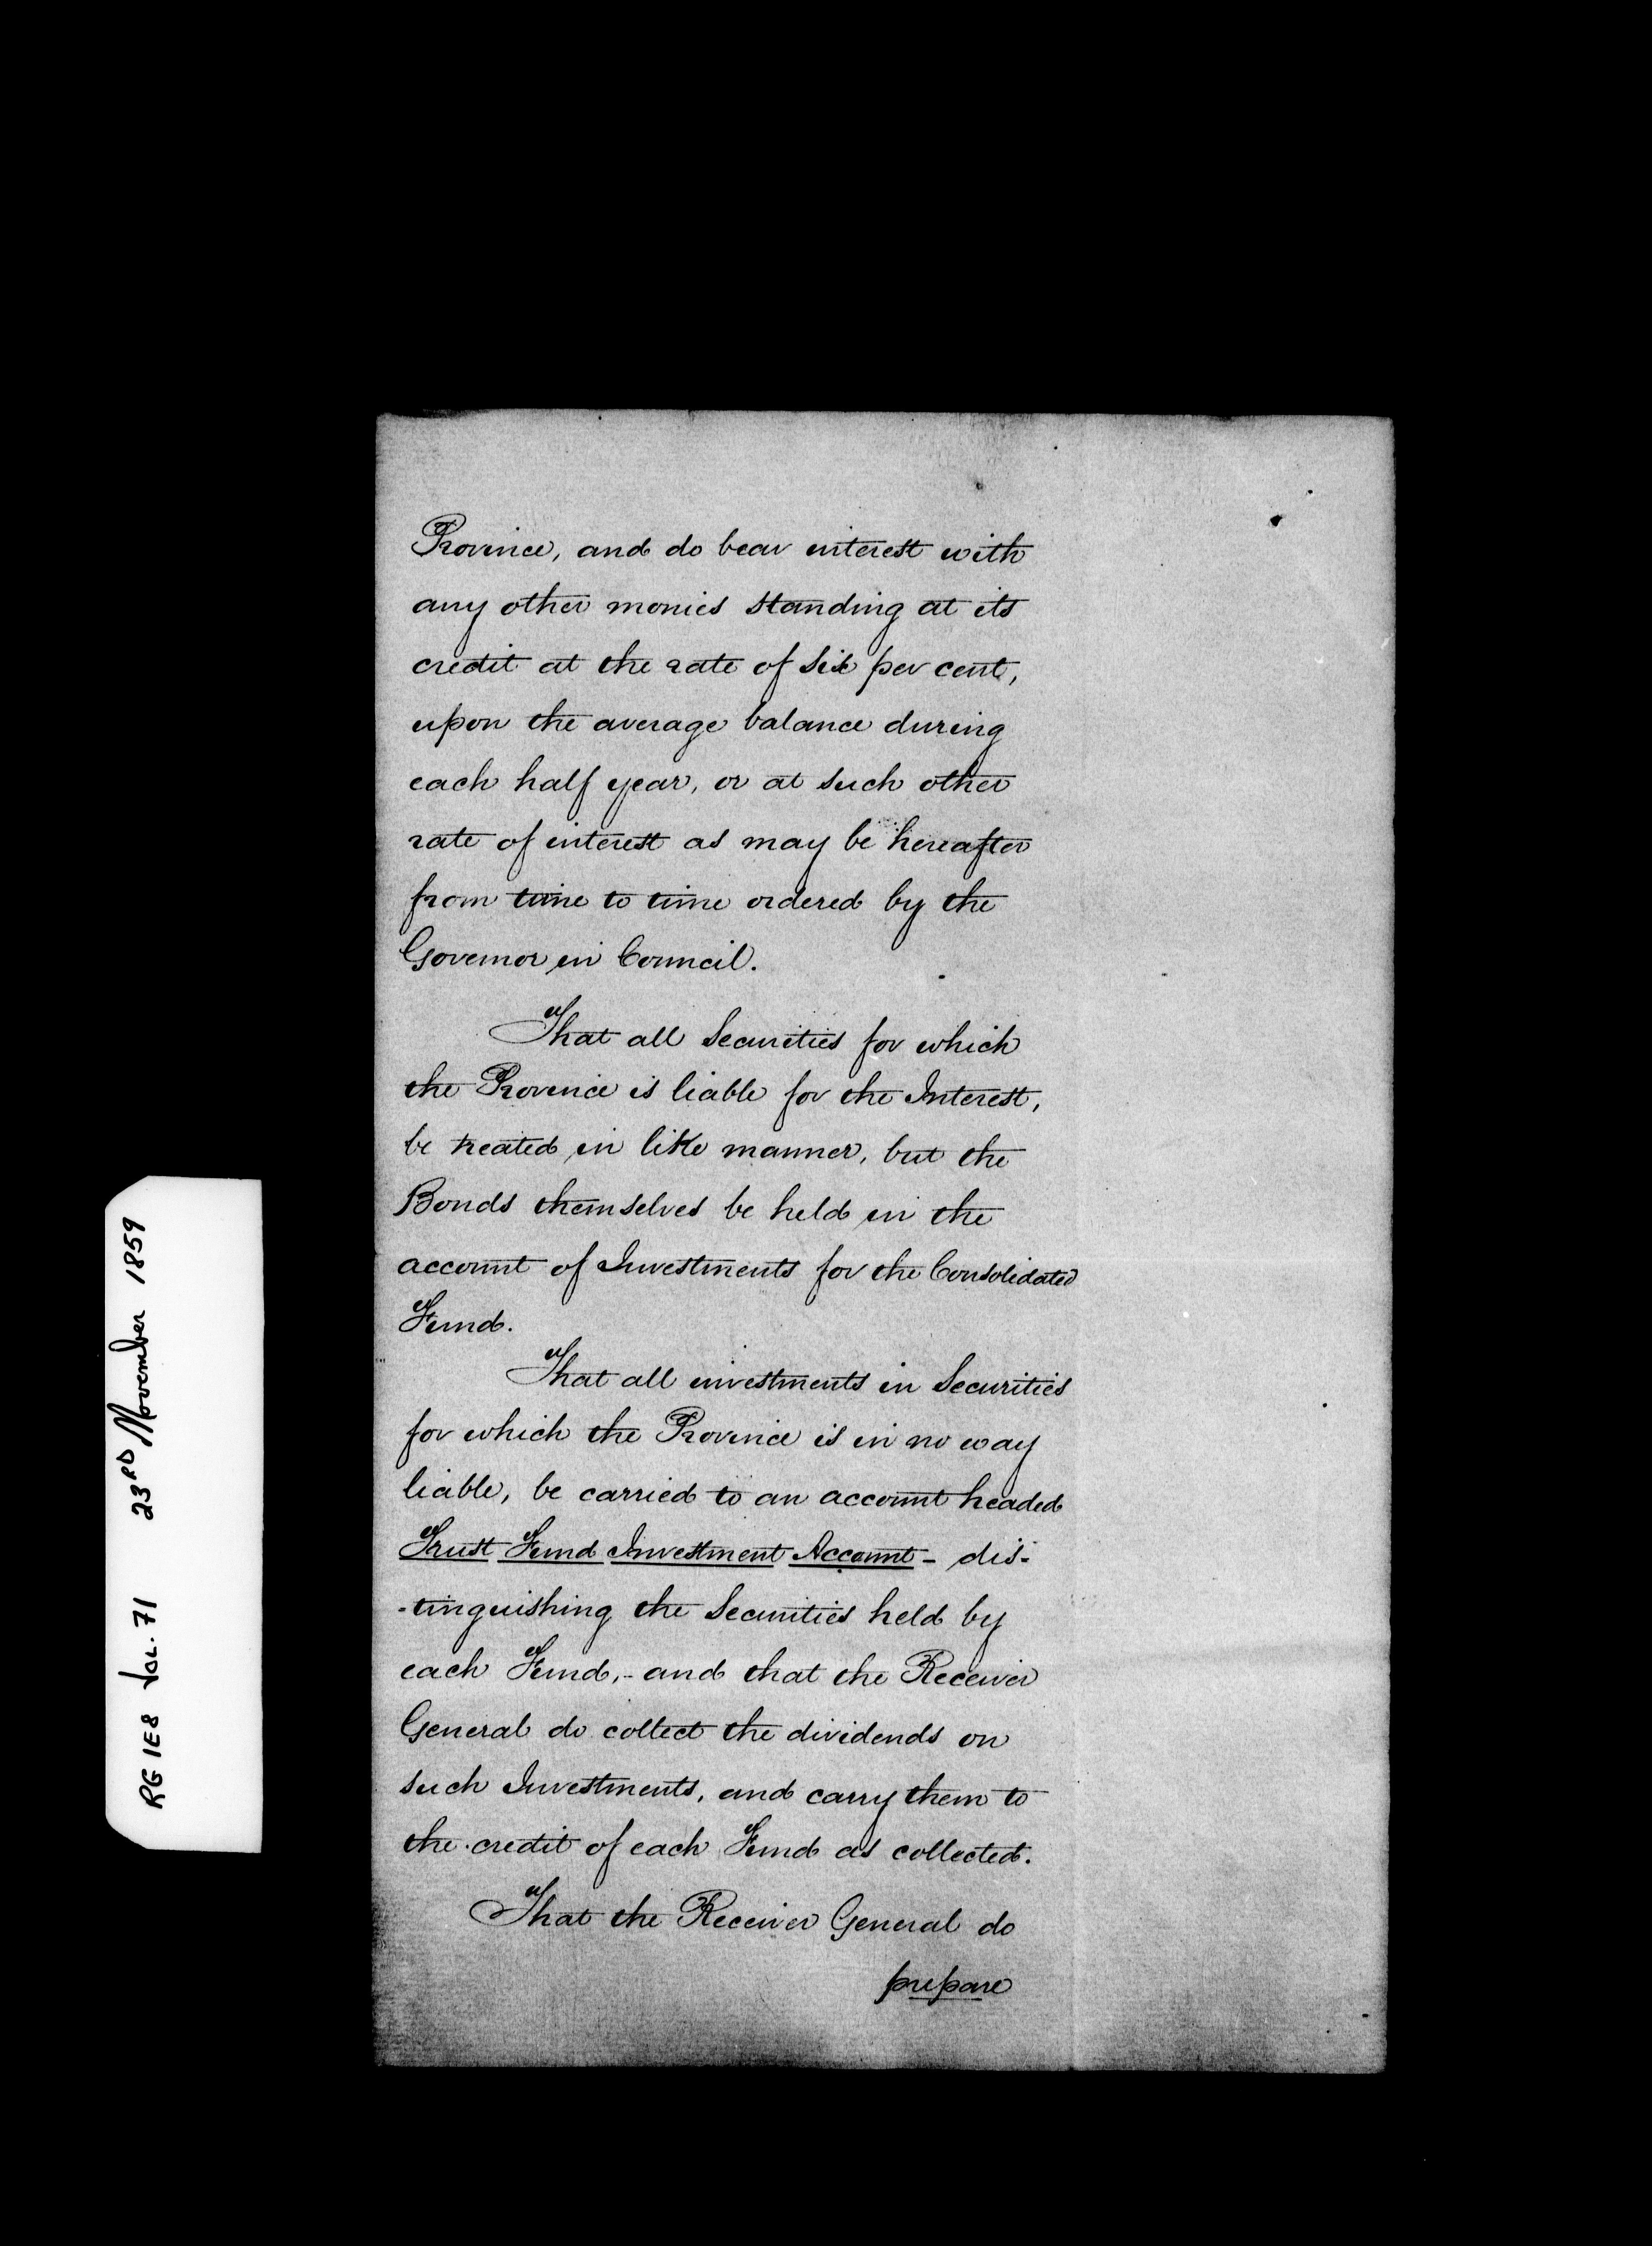 Province, and do bear interest with
any other monies standing at its
credit at the rate of six per cent,
upon the average balance during
each half year, or at such other
rate of interest as may be hereafter
from time to time ordered by the
Governor in Council.
That all Securities for which
the Province is liable for the Interest,
be treated in like manner, but the
Bonds themselves be held in the
account of Investments for the Consolidated
Fund.
That all investments in Securities
for which the Province is in no way
liable, be carried to an account headed
Trust Fund Investment Account - dis-
-tinguishing the Securities held by
each Fund, - and that the Receiver
General do collect the dividends on
such Investments, and carry them to
the credit of each Fund as collected.
That the Receiver General do
prepare
RG 1E8 Vol. 71 23RD November 1859